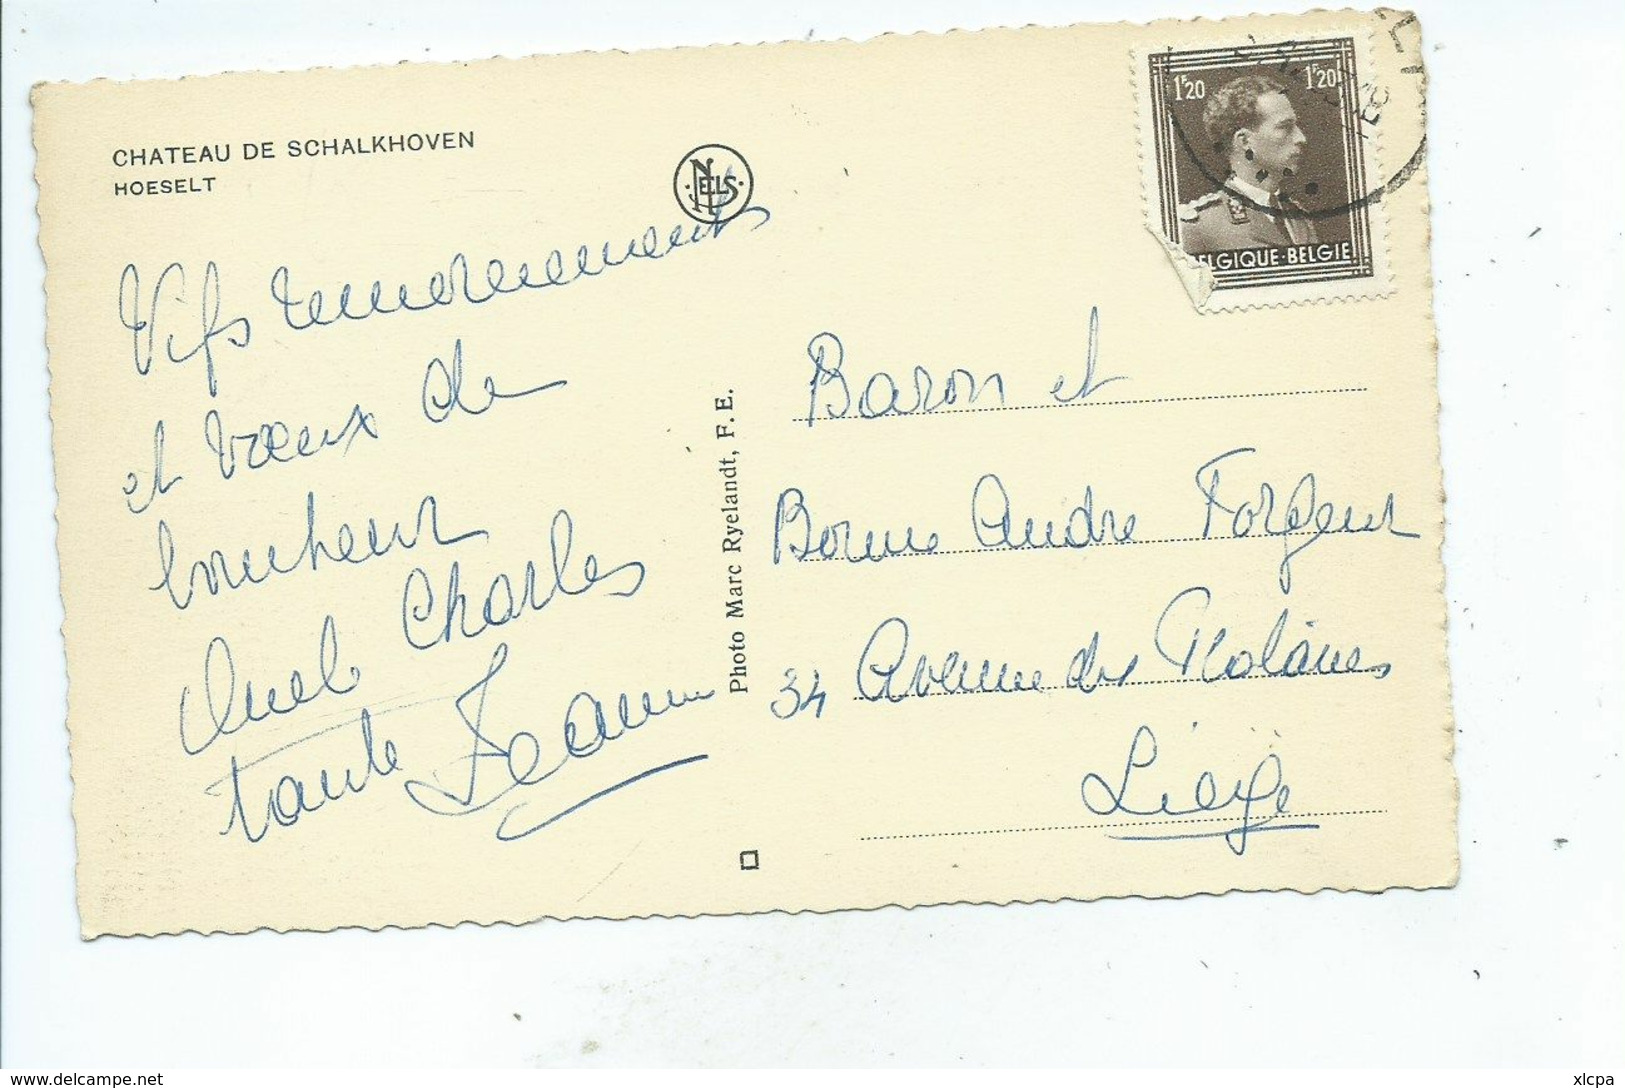 CHATEAU DE SCHALKHOVEN
HOESELT
NELS
1F20 1F20
BELGIQUE-BELGIE
Vifs remerciements
et vœux de
bonheur
Oncle Charles
tante Jeanne
Photo Marc Ryelandt, F. E.
Baron et
Bonne André Forgeur
34 Avenue des Platanes
Liège
delcampe.net
xlcpa